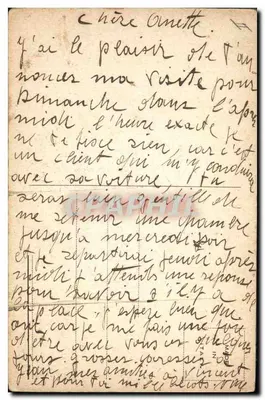 Chère Anette.
j'ai le plaisir de t'an
noncer ma visite pour
Dimanche dans l'après
midi. l'heure exacte je
ne te fixe rien, car c'est
un client qui m'y conduira
avec sa voiture. Tu
serais bien gentille de
me retenir une chambre
jusqu'à mercredi soir
et je repartirai jeudi après
midi. j'attends une réponse
pour savoir s'il y a
de la place. j'espère bien que
oui, car je me fais une joie
d'être avec vous quelques
jours. grosses caresses à
mes amitiés à Vincent
et pour toi mille bécots